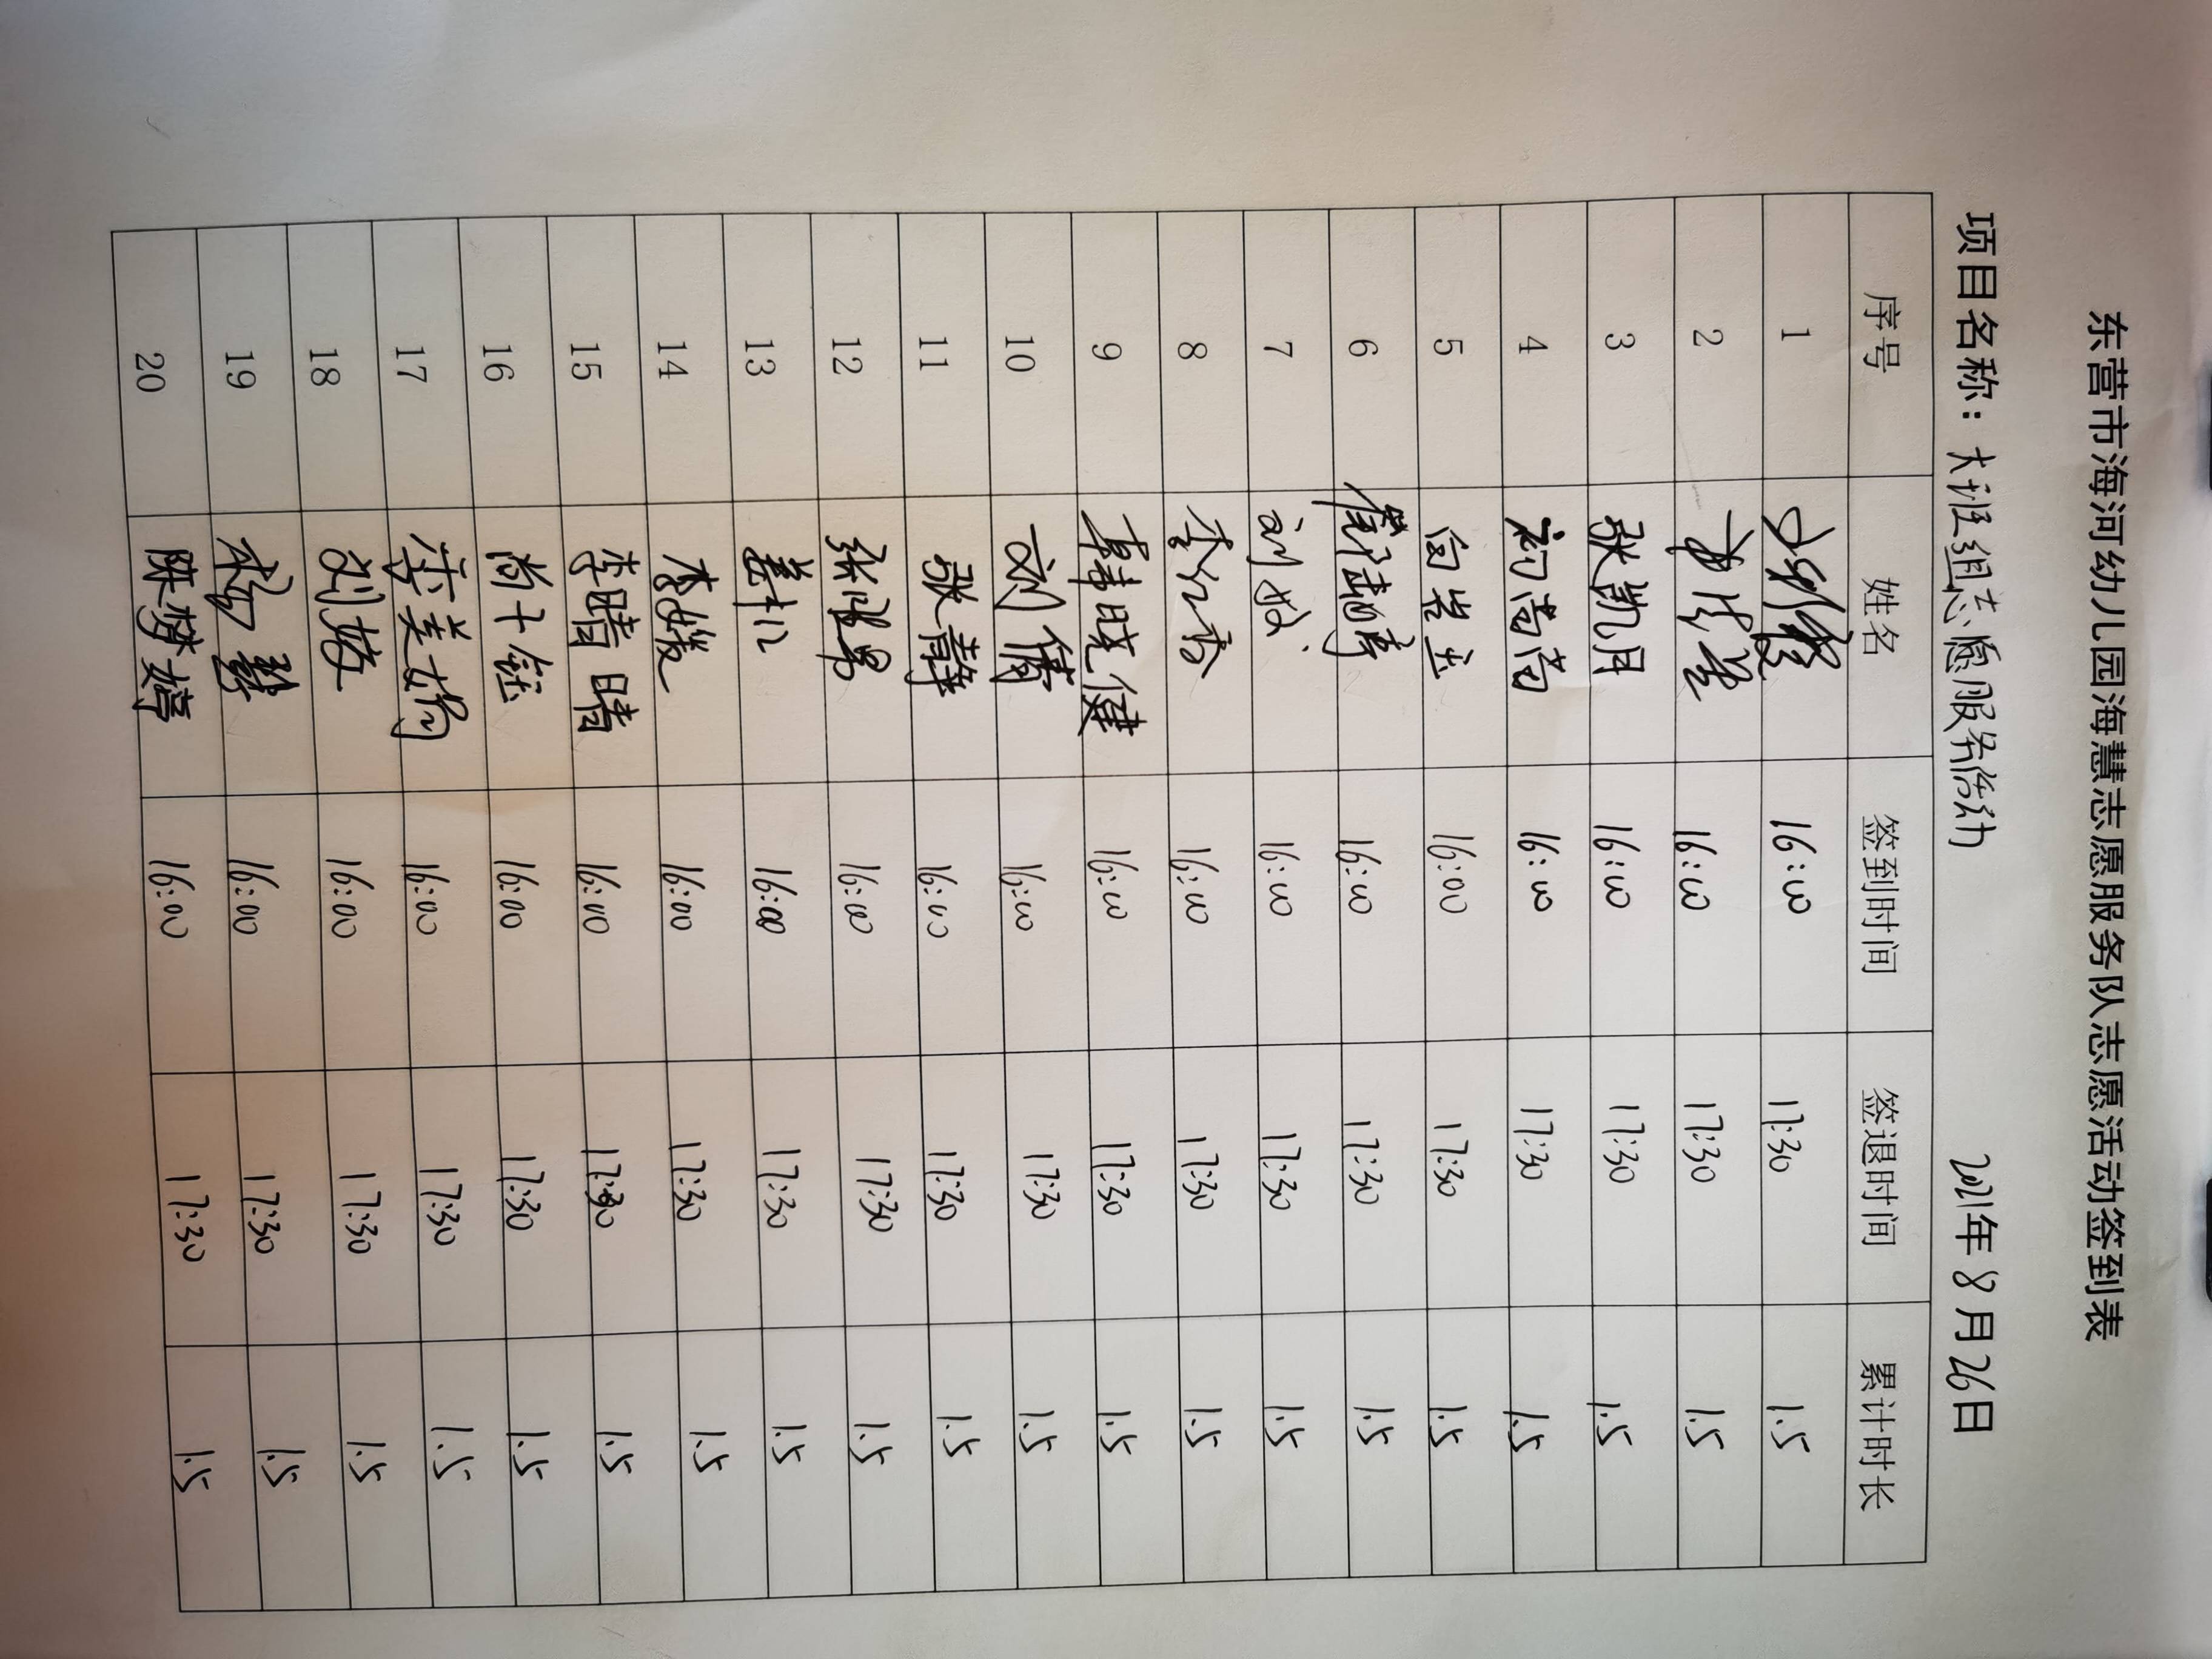 东营市海河幼儿园海慧志愿服务队志愿活动签到表
项目名称：大班组志愿服务活动 2021年8月26日
序号 姓名 签到时间 签退时间 累计时长
1 16:00 17:30 1.5
2 16:00 17:30 1.5
3 张凯月 16:00 17:30 1.5
4 初尚尚 16:00 17:30 1.5
5 16:00 17:30 1.5
6 16:00 17:30 1.5
7 刘姣 16:00 17:30 1.5
8 李红香 16:00 17:30 1.5
9 韩晓健 16:00 17:30 1.5
10 刘倩 16:00 17:30 1.5
11 张静 16:00 17:30 1.5
12 16:00 17:30 1.5
13 16:00 17:30 1.5
14 李媛 16:00 17:30 1.5
15 李晴晴 16:00 17:30 1.5
16 尚千钰 16:00 17:30 1.5
17 宋美娟 16:00 17:30 1.5
18 刘敏 16:00 17:30 1.5
19 16:00 17:30 1.5
20 陈梦婷 16:00 17:30 1.5